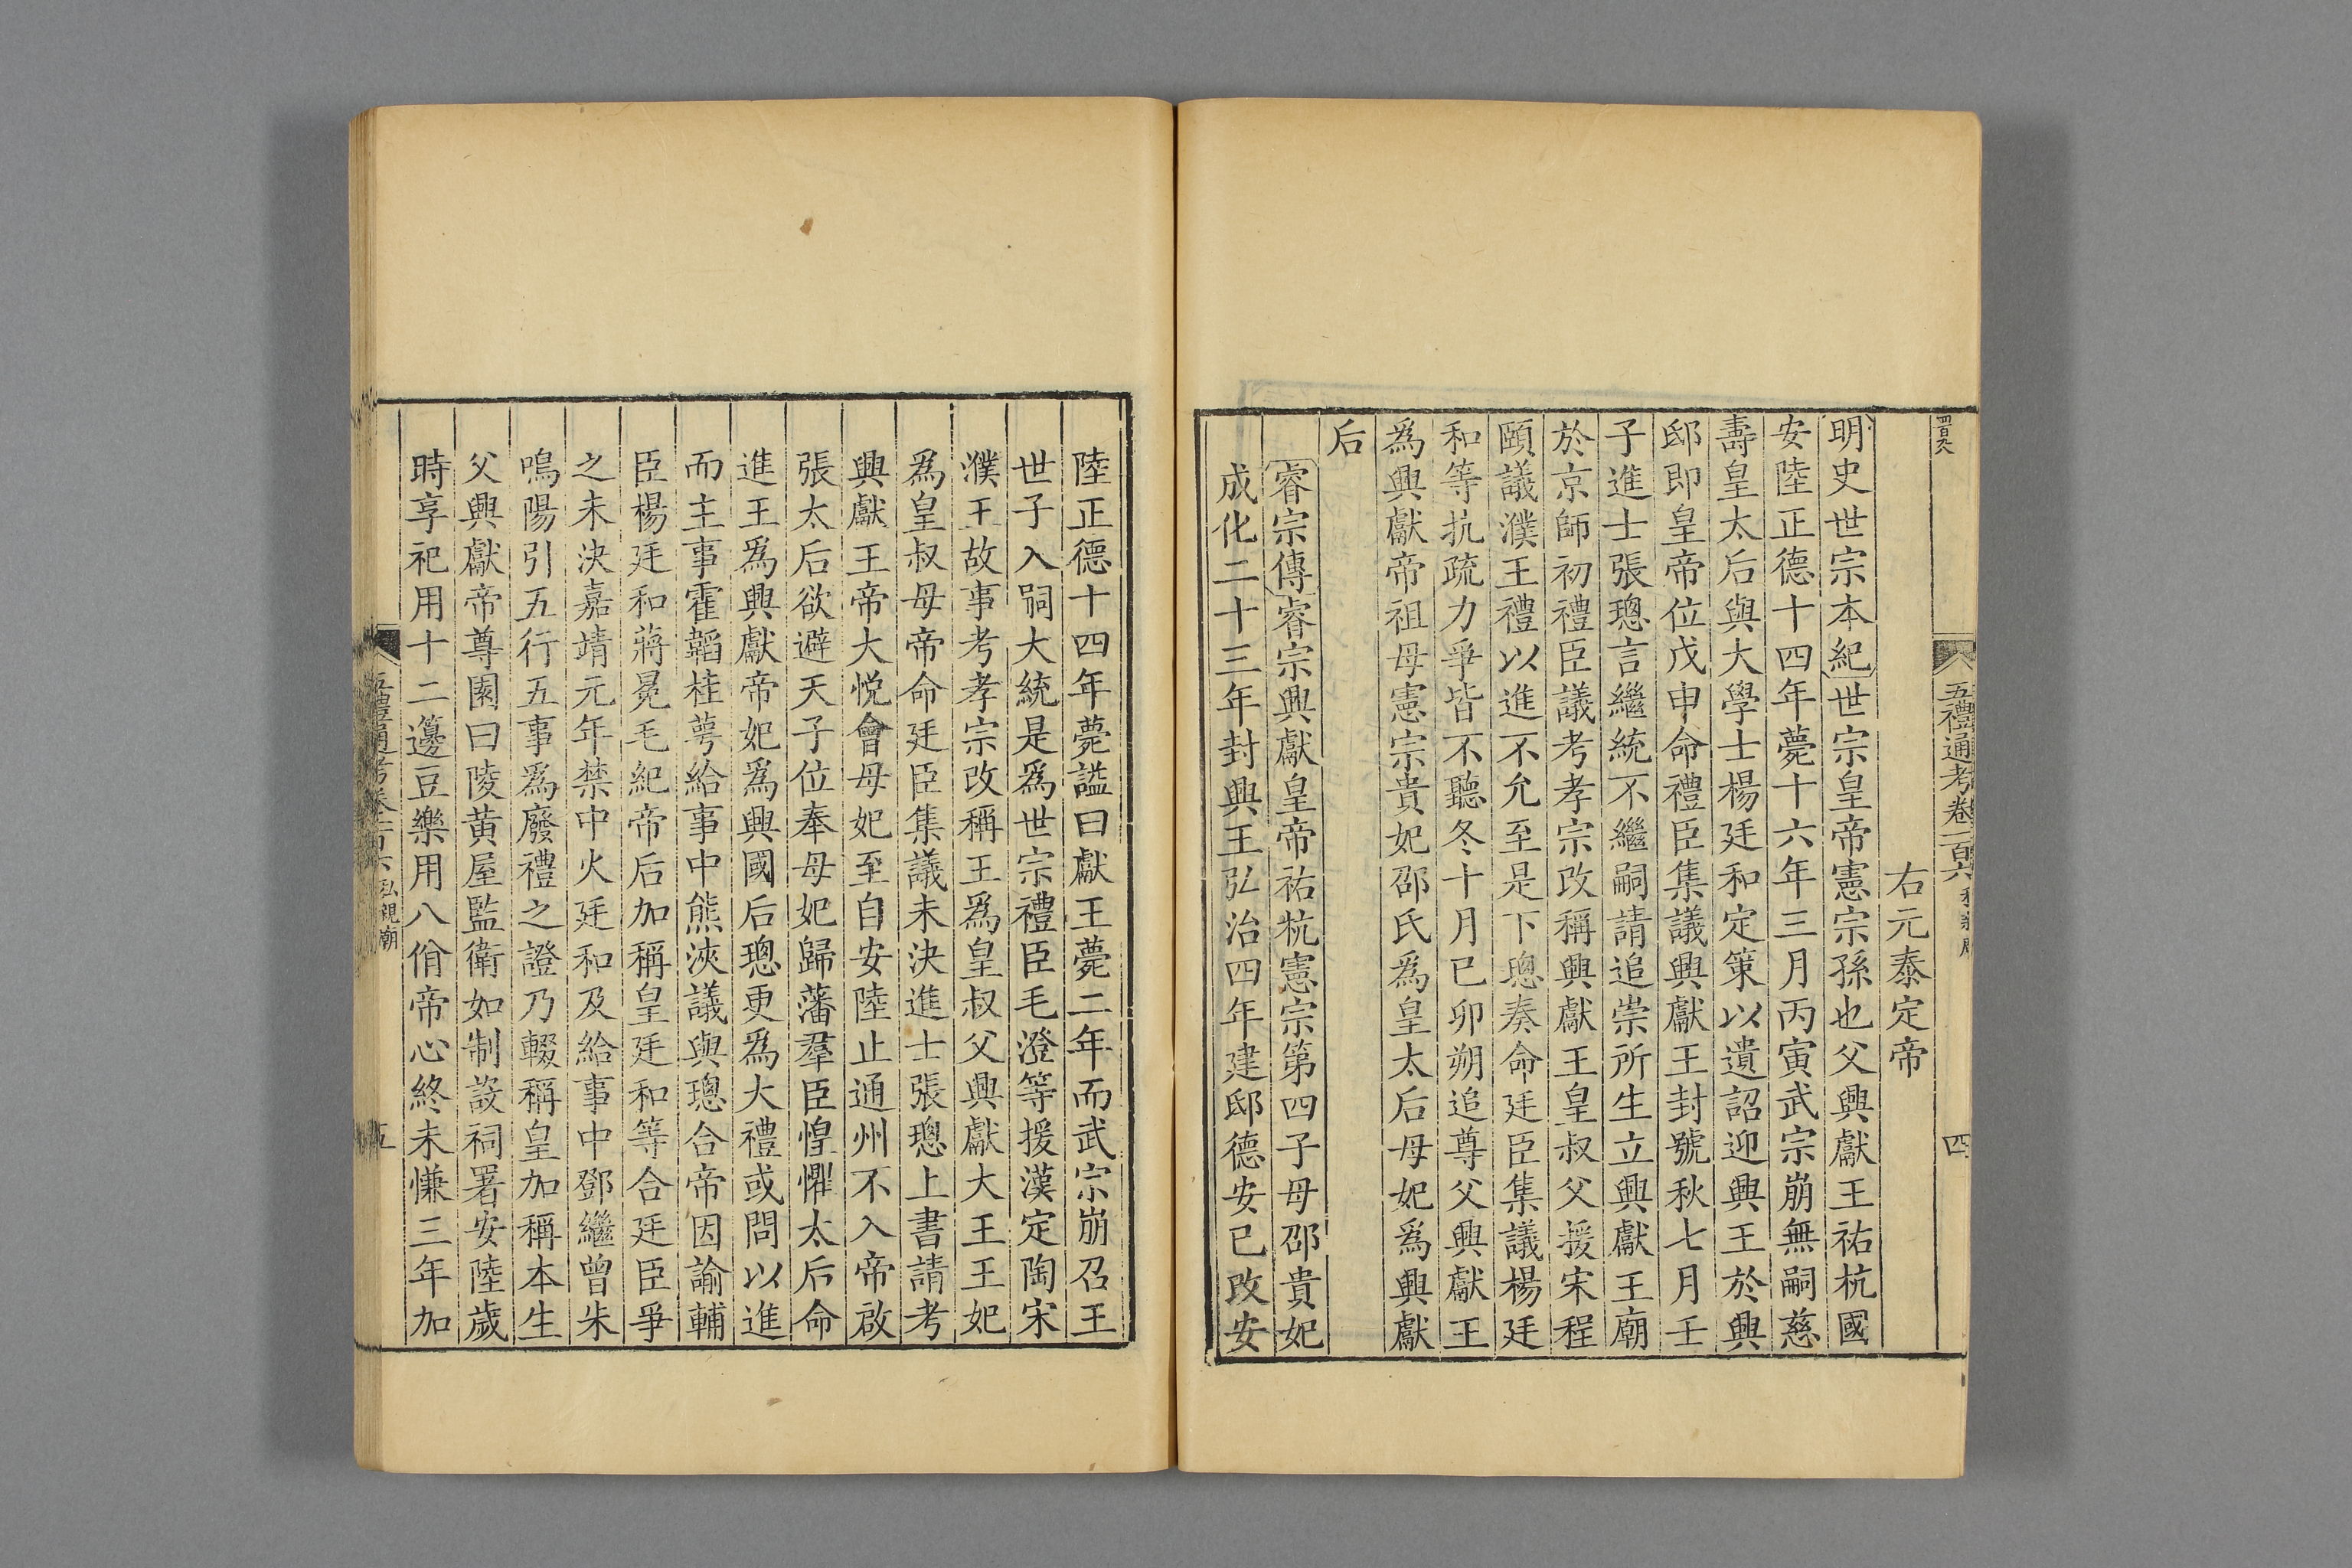 五禮通考卷一百六
四
右元泰定帝
明史世宗本紀世宗皇帝憲宗孫也父興獻王祐杬國
安陸正德十四年薨十六年三月丙寅武宗崩無嗣慈
壽皇太后與大學士楊廷和定策以遺詔迎興王於興
邸即皇帝位戊申命禮臣集議興獻王封號秋七月壬
子進士張璁言繼統不繼嗣請追崇所生立興獻王廟
於京師初禮臣議考孝宗改稱興獻王皇叔父援宋程
頤議濮王禮以進不允至是下璁奏命廷臣集議楊廷
和等抗疏力爭皆不聽冬十月己卯朔追尊父興獻王
為興獻帝祖母憲宗貴妃邵氏為皇太后母妃為興獻
后
睿宗傳睿宗興獻皇帝祐杬憲宗第四子母邵貴妃
成化二十三年封興王弘治四年建邸德安已改安
陸正德十四年薨謚曰獻王薨二年而武宗崩召王
世子入嗣大統是為世宗禮臣毛澄等援漢定陶宋
濮王故事考孝宗改稱王為皇叔父興獻大王王妃
為皇叔母帝命廷臣集議未決進士張璁上書請考
興獻王帝大悅會母妃至自安陸止通州不入帝啟
張太后欲避天子位奉母妃歸藩羣臣惶懼太后命
進王為興獻帝妃為興國后璁更為大禮或問以進
而主事霍韜桂萼給事中熊浹議與璁合帝因諭輔
臣楊廷和蔣冕毛紀帝后加稱皇廷和等合廷臣爭
之未決嘉靖元年禁中火廷和及給事中鄧繼曾朱
鳴陽引五行五事為廢禮之證乃輟稱皇加稱本生
父興獻帝尊園曰陵黃屋監衛如制設祠署安陸歲
時享祀用十二籩豆樂用八佾帝心終未慊三年加
五禮通考卷一百六 私親廟
五